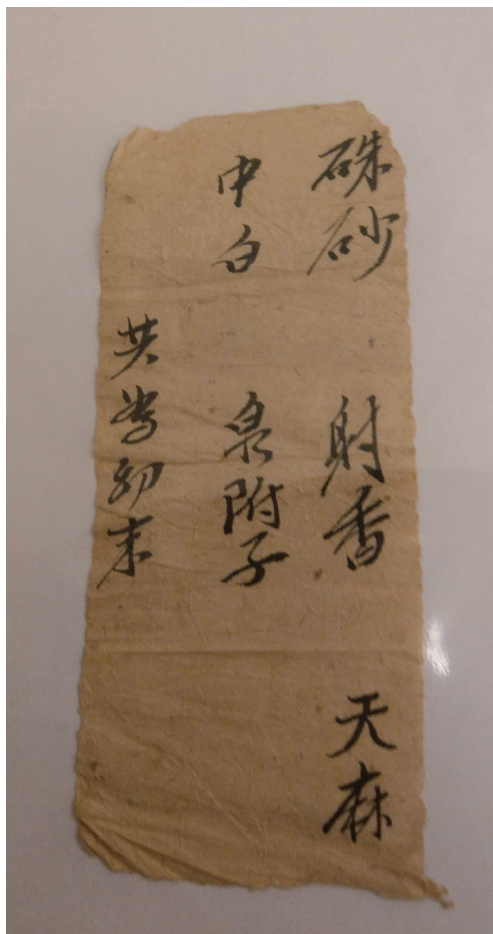 硃砂 射香 天麻
中白 泉附子
共為幼末